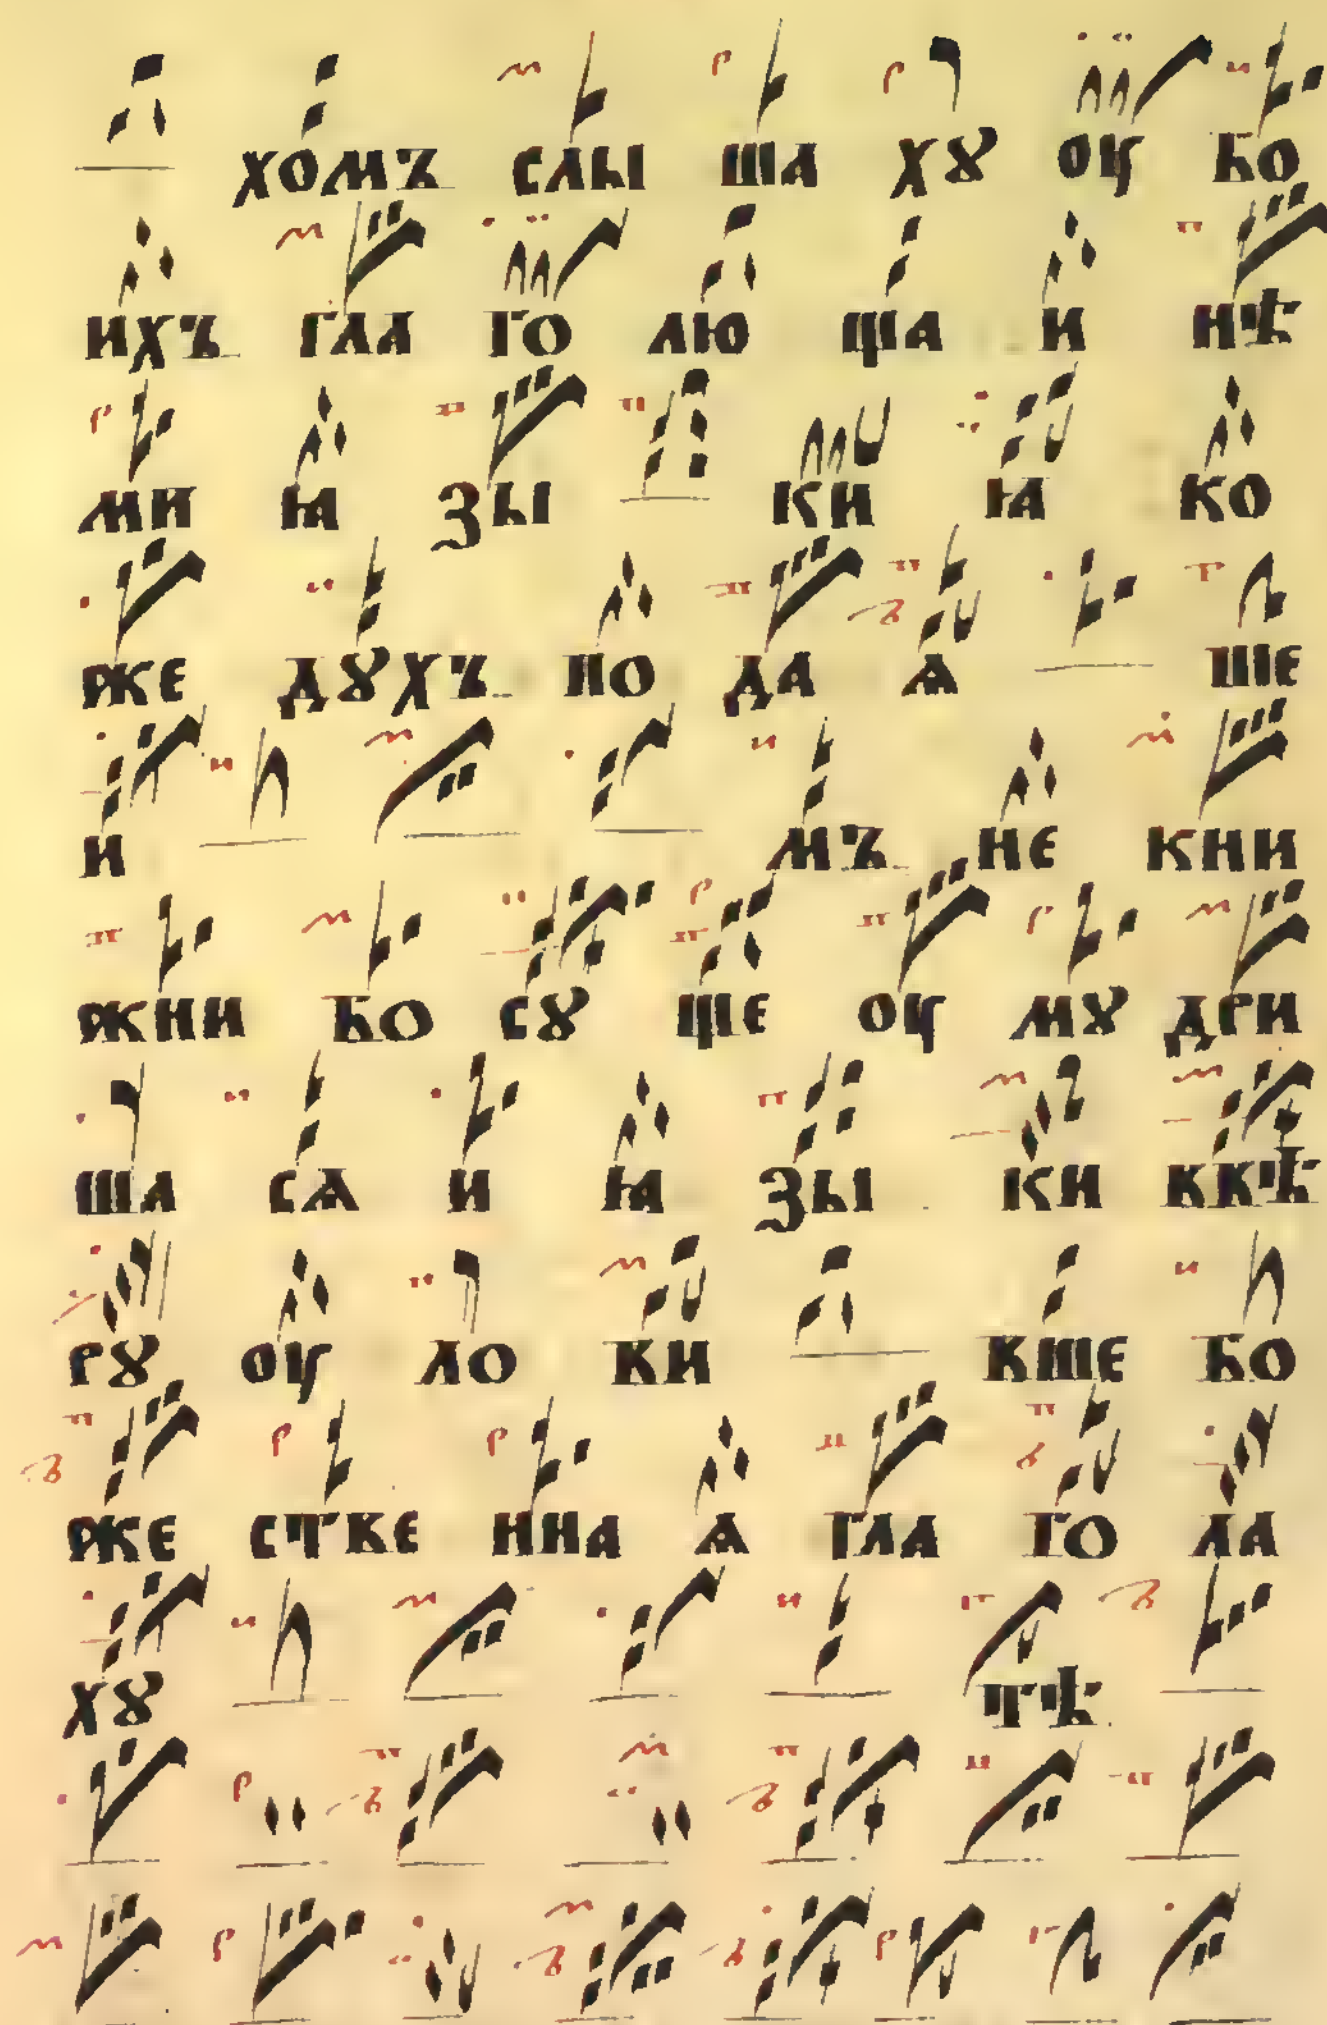 хомъ слы ша хꙋ оу бо
ихъ гла го лю ща и нѣ
ми ꙗ зы ки ꙗ ко
же дꙋхъ по да ѧ ше
и мъ не кни
жни бо сꙋ ще оу мꙋ дри
ша сѧ и ꙗ зы ки ввѣ
рꙋ оу ло ви вше бо
же стве нна ѧ гла го ла
хꙋ тѣ